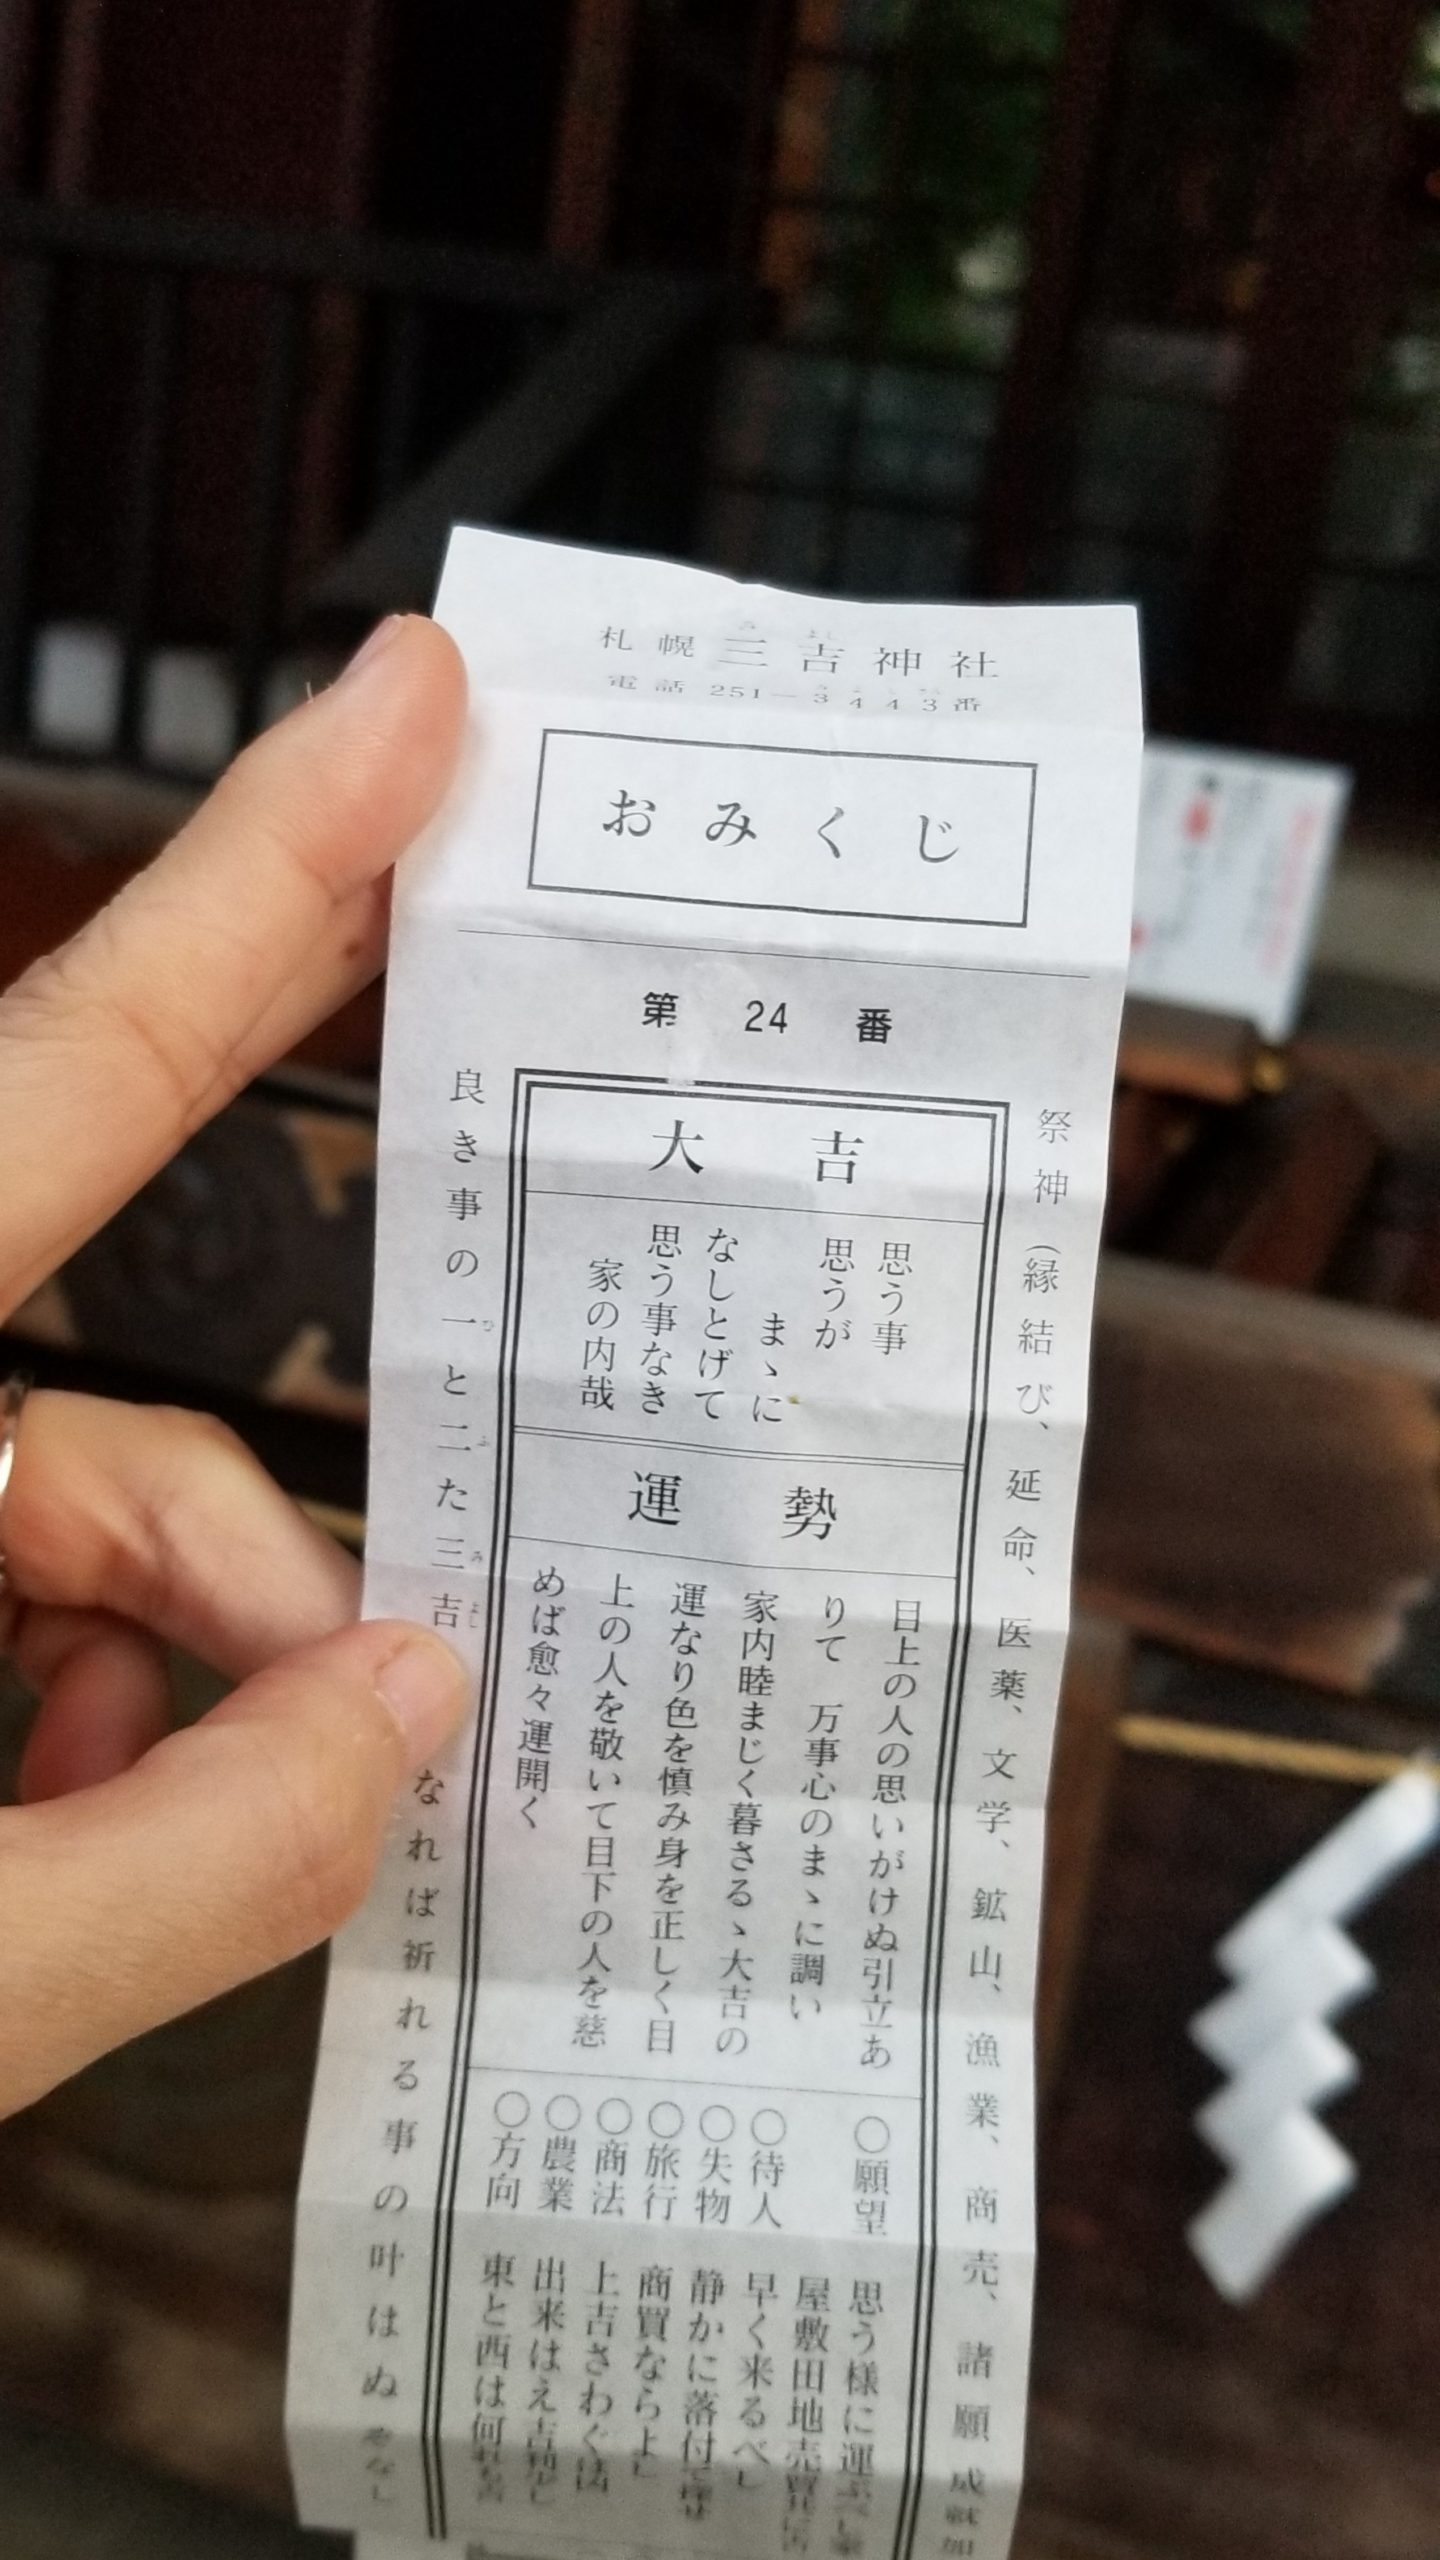 札幌三吉神社
電話 251-3443番
おみくじ
第 24 番
祭神（縁結び、延命、医薬、文学、鉱山、漁業、商売、諸願成就
大吉
思う事
思うが
まゝに
なしとげて
思う事なき
家の内哉
運勢
目上の人の思いがけぬ引立あ
りて 万事心のまゝに調い
家内睦まじく暮さるゝ大吉の
運なり色を慎み身を正しく目
上の人を敬いて目下の人を慈
めば愈々運開く
○願望 思う様に運
屋敷田地売
○待人 早く来るべし
○失物 静かに落付
○旅行 商買ならよし
○商法 上吉さわぐ
○農業 出来はえ吉
○方向 東と西は何
良き事の一と二た三吉
なれば祈れる事の叶はぬ